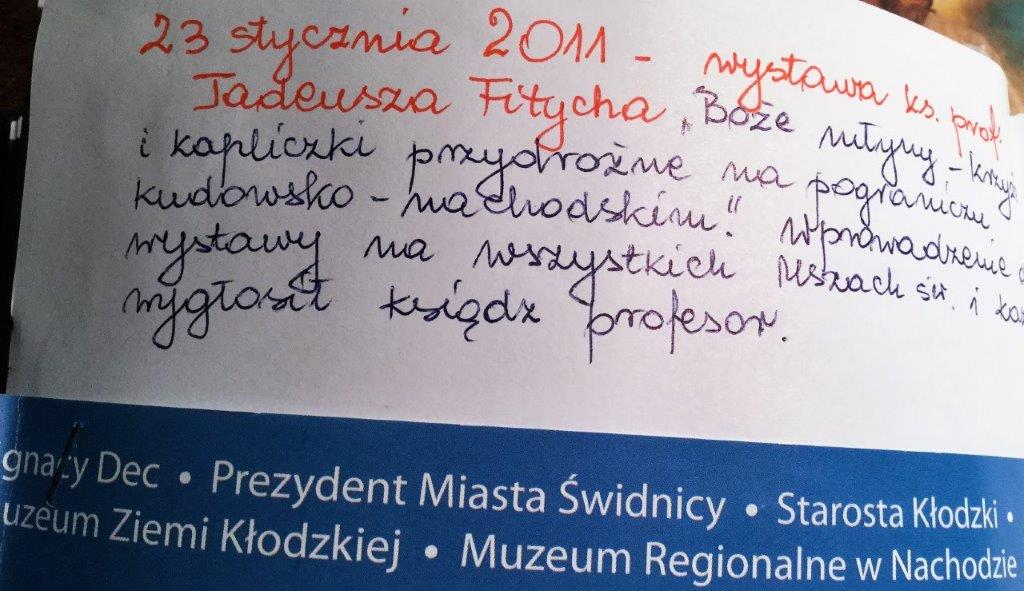 23 stycznia 2011 - wystawa ks. prof.
Tadeusza Fitycha „Boże młyny - krzyż
i kapliczki przydrożne na pograniczu
kudowsko - nachodskim." Wprowadzenie d
wystawy na wszystkich Mszach św. i
wygłosił ksiądz profesor.
gnacy Dec • Prezydent Miasta Świdnicy • Starosta Kłodzki •
uzeum Ziemi Kłodzkiej • Muzeum Regionalne w Nachodzie